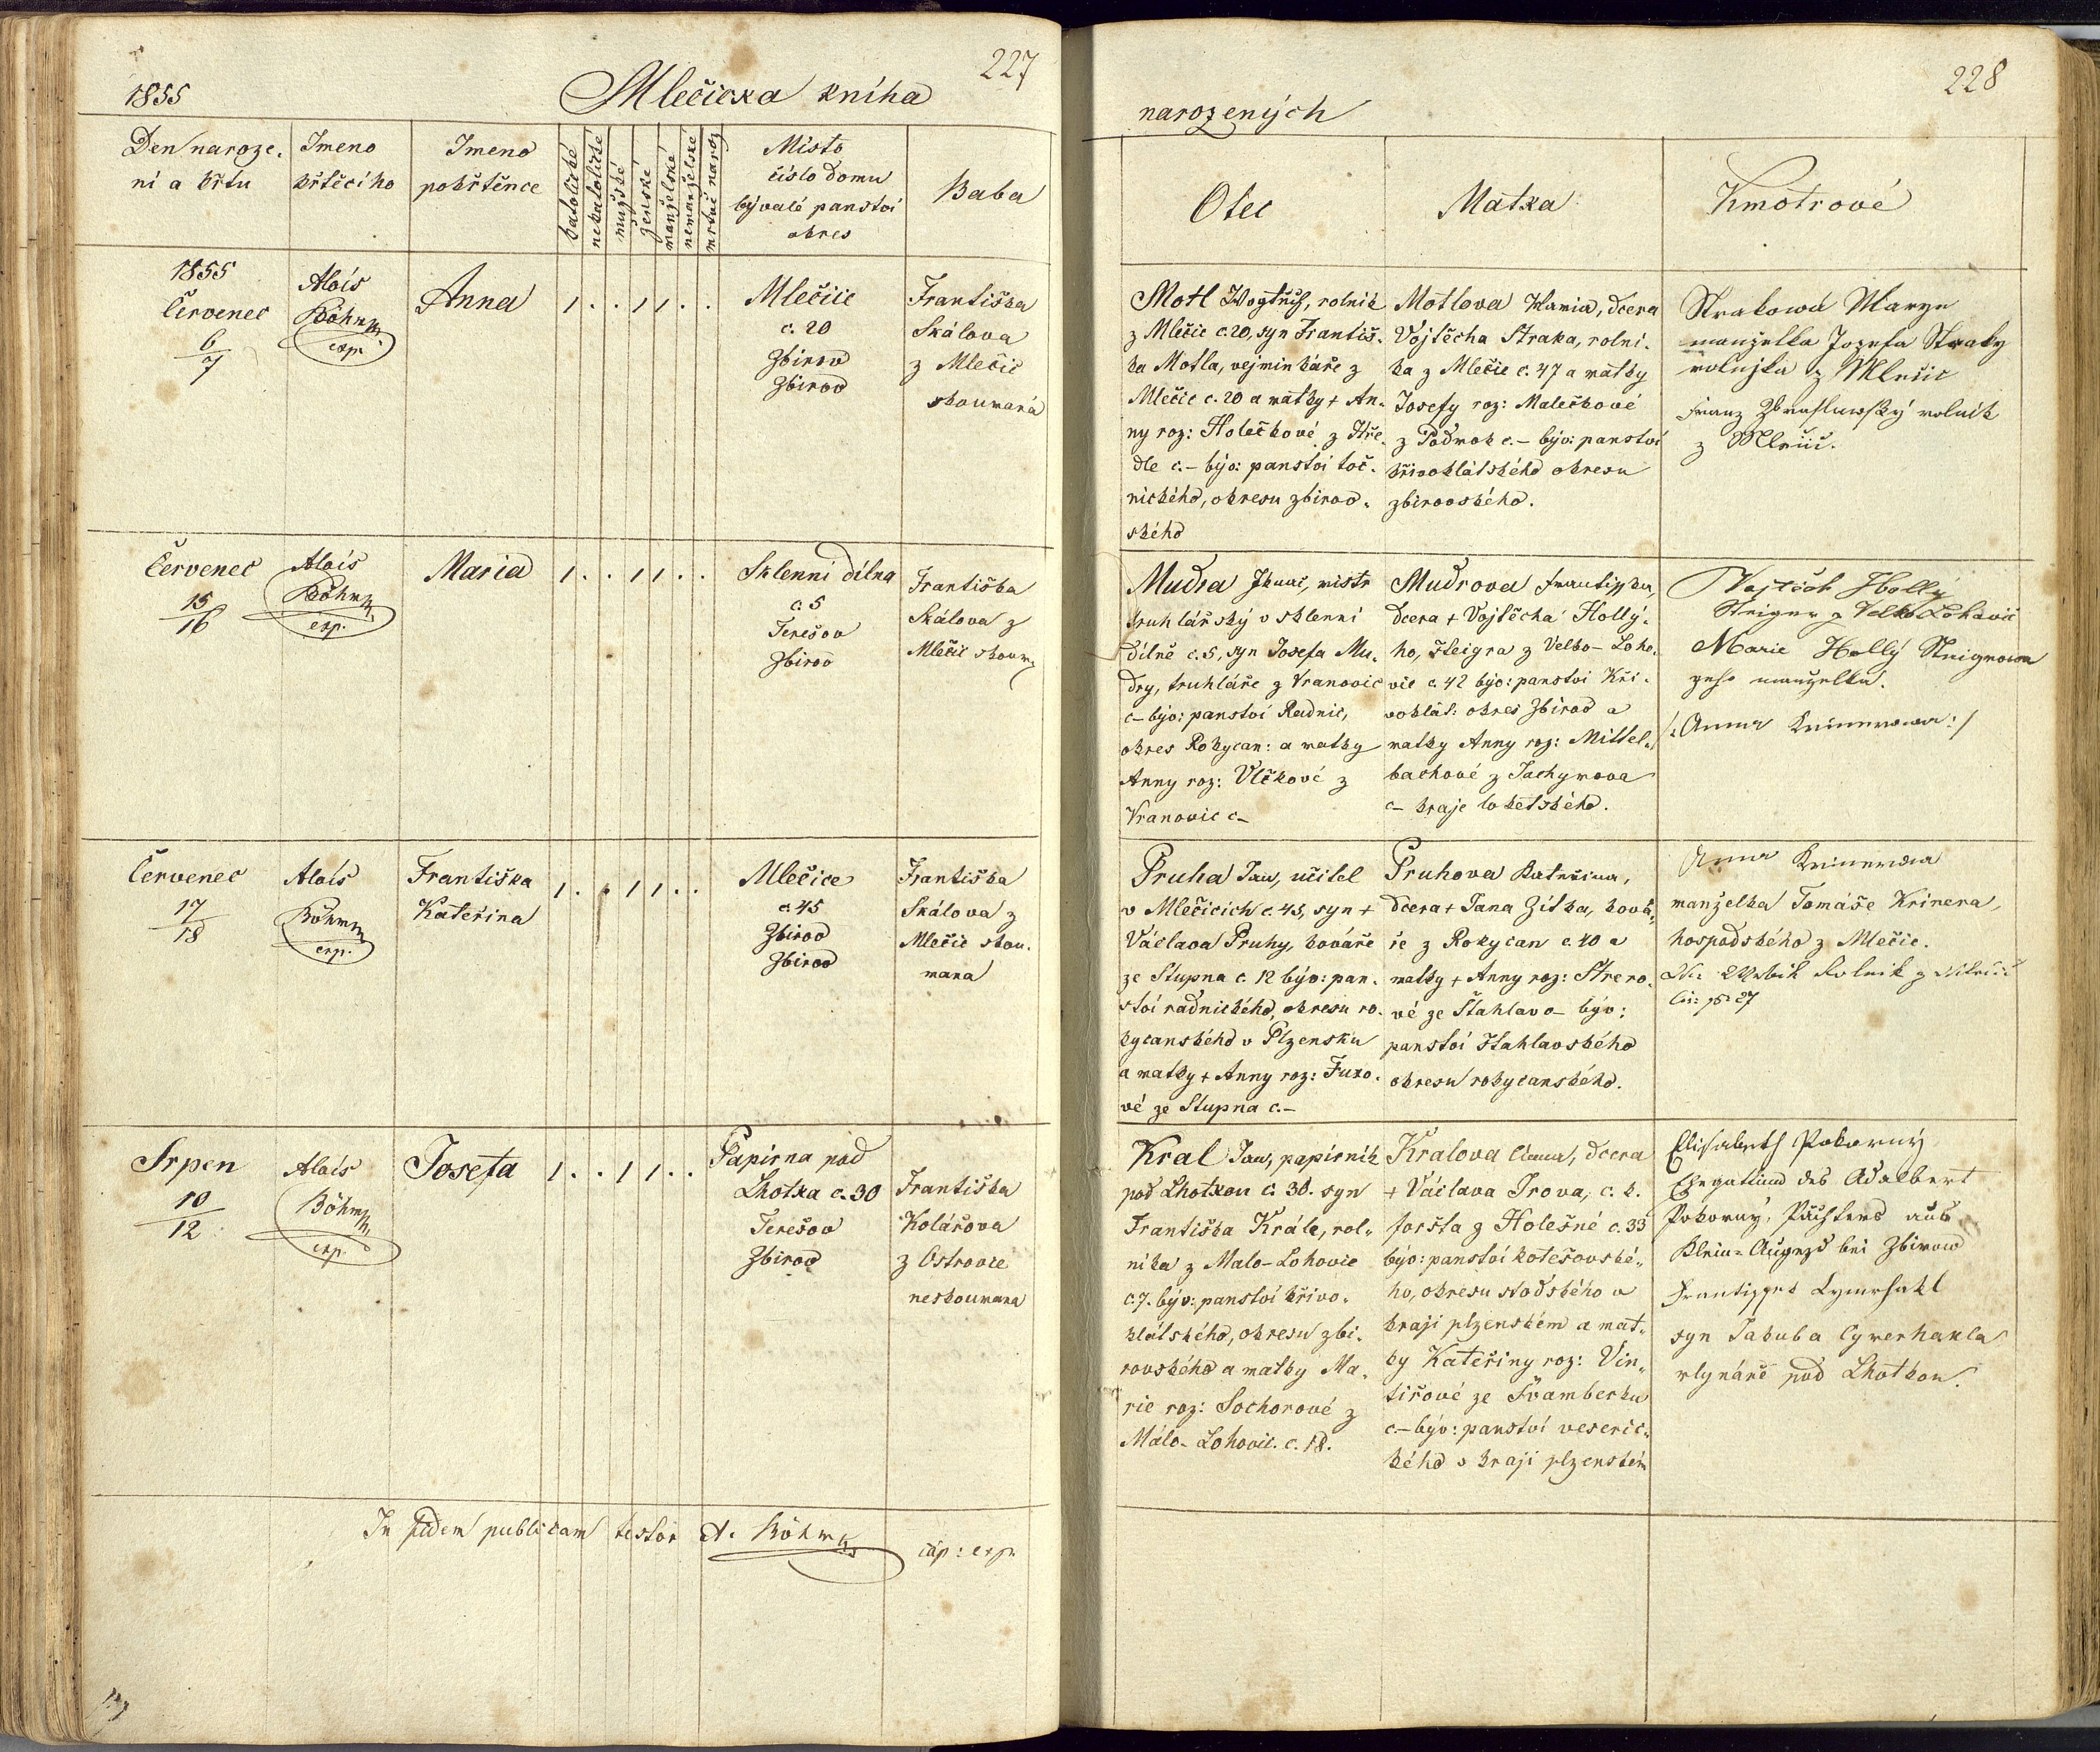 227
1855
Mlečicka kniha
Den naroze.
ní a křtu
Imeno
křtěcího
Imeno
pokřtěnce
katolické
nekatolické
mužské
ženské
manželské
nemanželské
mrtvě naroz
Místo
číslo domu
bývalé panství
okres
Baba
1855
Červenec
6
7
Alois
Böhm
exp.
Anna
1 . . 1 1 . .
Mlečice
c. 20
Zbirov
Zbirov
Františka
Skálova
z Mlečic
skoumaná
Červenec
15
16
Alois
Böhm
exp.
Maria
1 . . 1 1 . .
Sklenni dílna
c. 5
Terešov
Zbirov
Františka
Skálova z
Mlečic skoum
Červenec
17
18
Alois
Böhm
exp.
Františka
Kateřina
1 . . 1 1 . .
Mlečice
c. 45
Zbirov
Zbirov
Františka
Skálova z
Mlečic skou.
mana
Srpen
10
12
Alois
Böhm
exp.
Josefa
1 . . 1 1 . .
Papirna pod
Lhotka c. 30
Terešov
Zbirov
Františka
Kolářova
z Ostrovce
neskoumana
In fidem publicam testor A. Böhm
cáp: exp.
228
narozených
Otec
Matka
Kmotrové
Motl, rolník
z Mlečic c. 20, syn Františ.
ka Motla, vejminkáře z
Mlečic c. 20 a matky + An.
ny roz: Holečkové z Hře.
dle c.– býv: panství toč.
nického, okresu zbirov.
ského
Motlova Maria, dcera
Vojtěcha Straka, rolní.
ka z Mlečic c. 47 a matky
Josefy roz: Malečkové
z Podmok c.– býv: panství
křivoklátského okresu
zbirovského.
Strakowá Marye
manželka Josefa Straky
z Mlečic
Franz rolník
z Mlečic.
Mudra Ignac, mistr
truhlářský v sklenni
dílně c. 5, syn Josefa Mu.
dry, truhláře z Vranovic
c– býv: panství Radnic,
okres Rokycan: a matky
Anny roz: Vlčkové z
Vranovic c–
Mudrova Frantiska,
dcera + Vojtěcha Hollý.
ho, šteigra z Velko-Loho.
vic c. 42 býv: panství Kři.
voklát: okres Zbirov a
matky Anny roz: Mittel.
bachové z Jachymova
c– kraje loketského.
Vojtěch Hollý
Steiger z Velko Lohovic
Marie Hollý Steigrowa
geho manzelka.
/: Anna Krinerowa :/
Pruha Jan, učitel
v Mlečicích c. 45, syn +
Václava Pruhy, kováře
ze Stupna c. 12 býv: pan.
ství radnického, okresu ro.
kycanského v Plzensku
a matky + Anny roz: Fuxo.
vé ze Stupna c.–
Pruhova Kateřina,
dcera + Jana Zítka, ková.
ře z Rokycan c. 40 a
matky + Anny roz: Strero.
vé ze Štahlavo– býv:
panství štahlavského
okresu rokycanského.
Anna Krinerowa
manželka Tomáše Krinera,
hospodského z Mlečic.
Rolnik z Mlečic
Čís: p: 27
Kral Jan, papírník
pod Lhotkou c. 30. syn
Františka Krále, rol.
níka z Malo-Lohovic
c. 7. býv: panství křivo.
klátského, okresu zbi.
rovského a matky Ma.
rie roz: Sochorové z
Málo-Lohovic. c. 18.
Kralova Anna, dcera
+ Václava Trova, c. k.
foršta z Holešné c. 33
býv: panství kotešovské.
ho, okresu stodského v
kraji plzenském a mat.
ky Kateřiny roz: Vin.
tířové ze Švamberku
c– býv: panství veseric.
kého v kraji plzenském
Elisabeth Pokorný
Ehegattinn des Adalbert
Pokorný, Pächters aus
Klein-Augezd bei Zbirow
Frantissek Cymrhakl
syn Jakuba Cymerhakla
mlynáře pod Lhotkou.